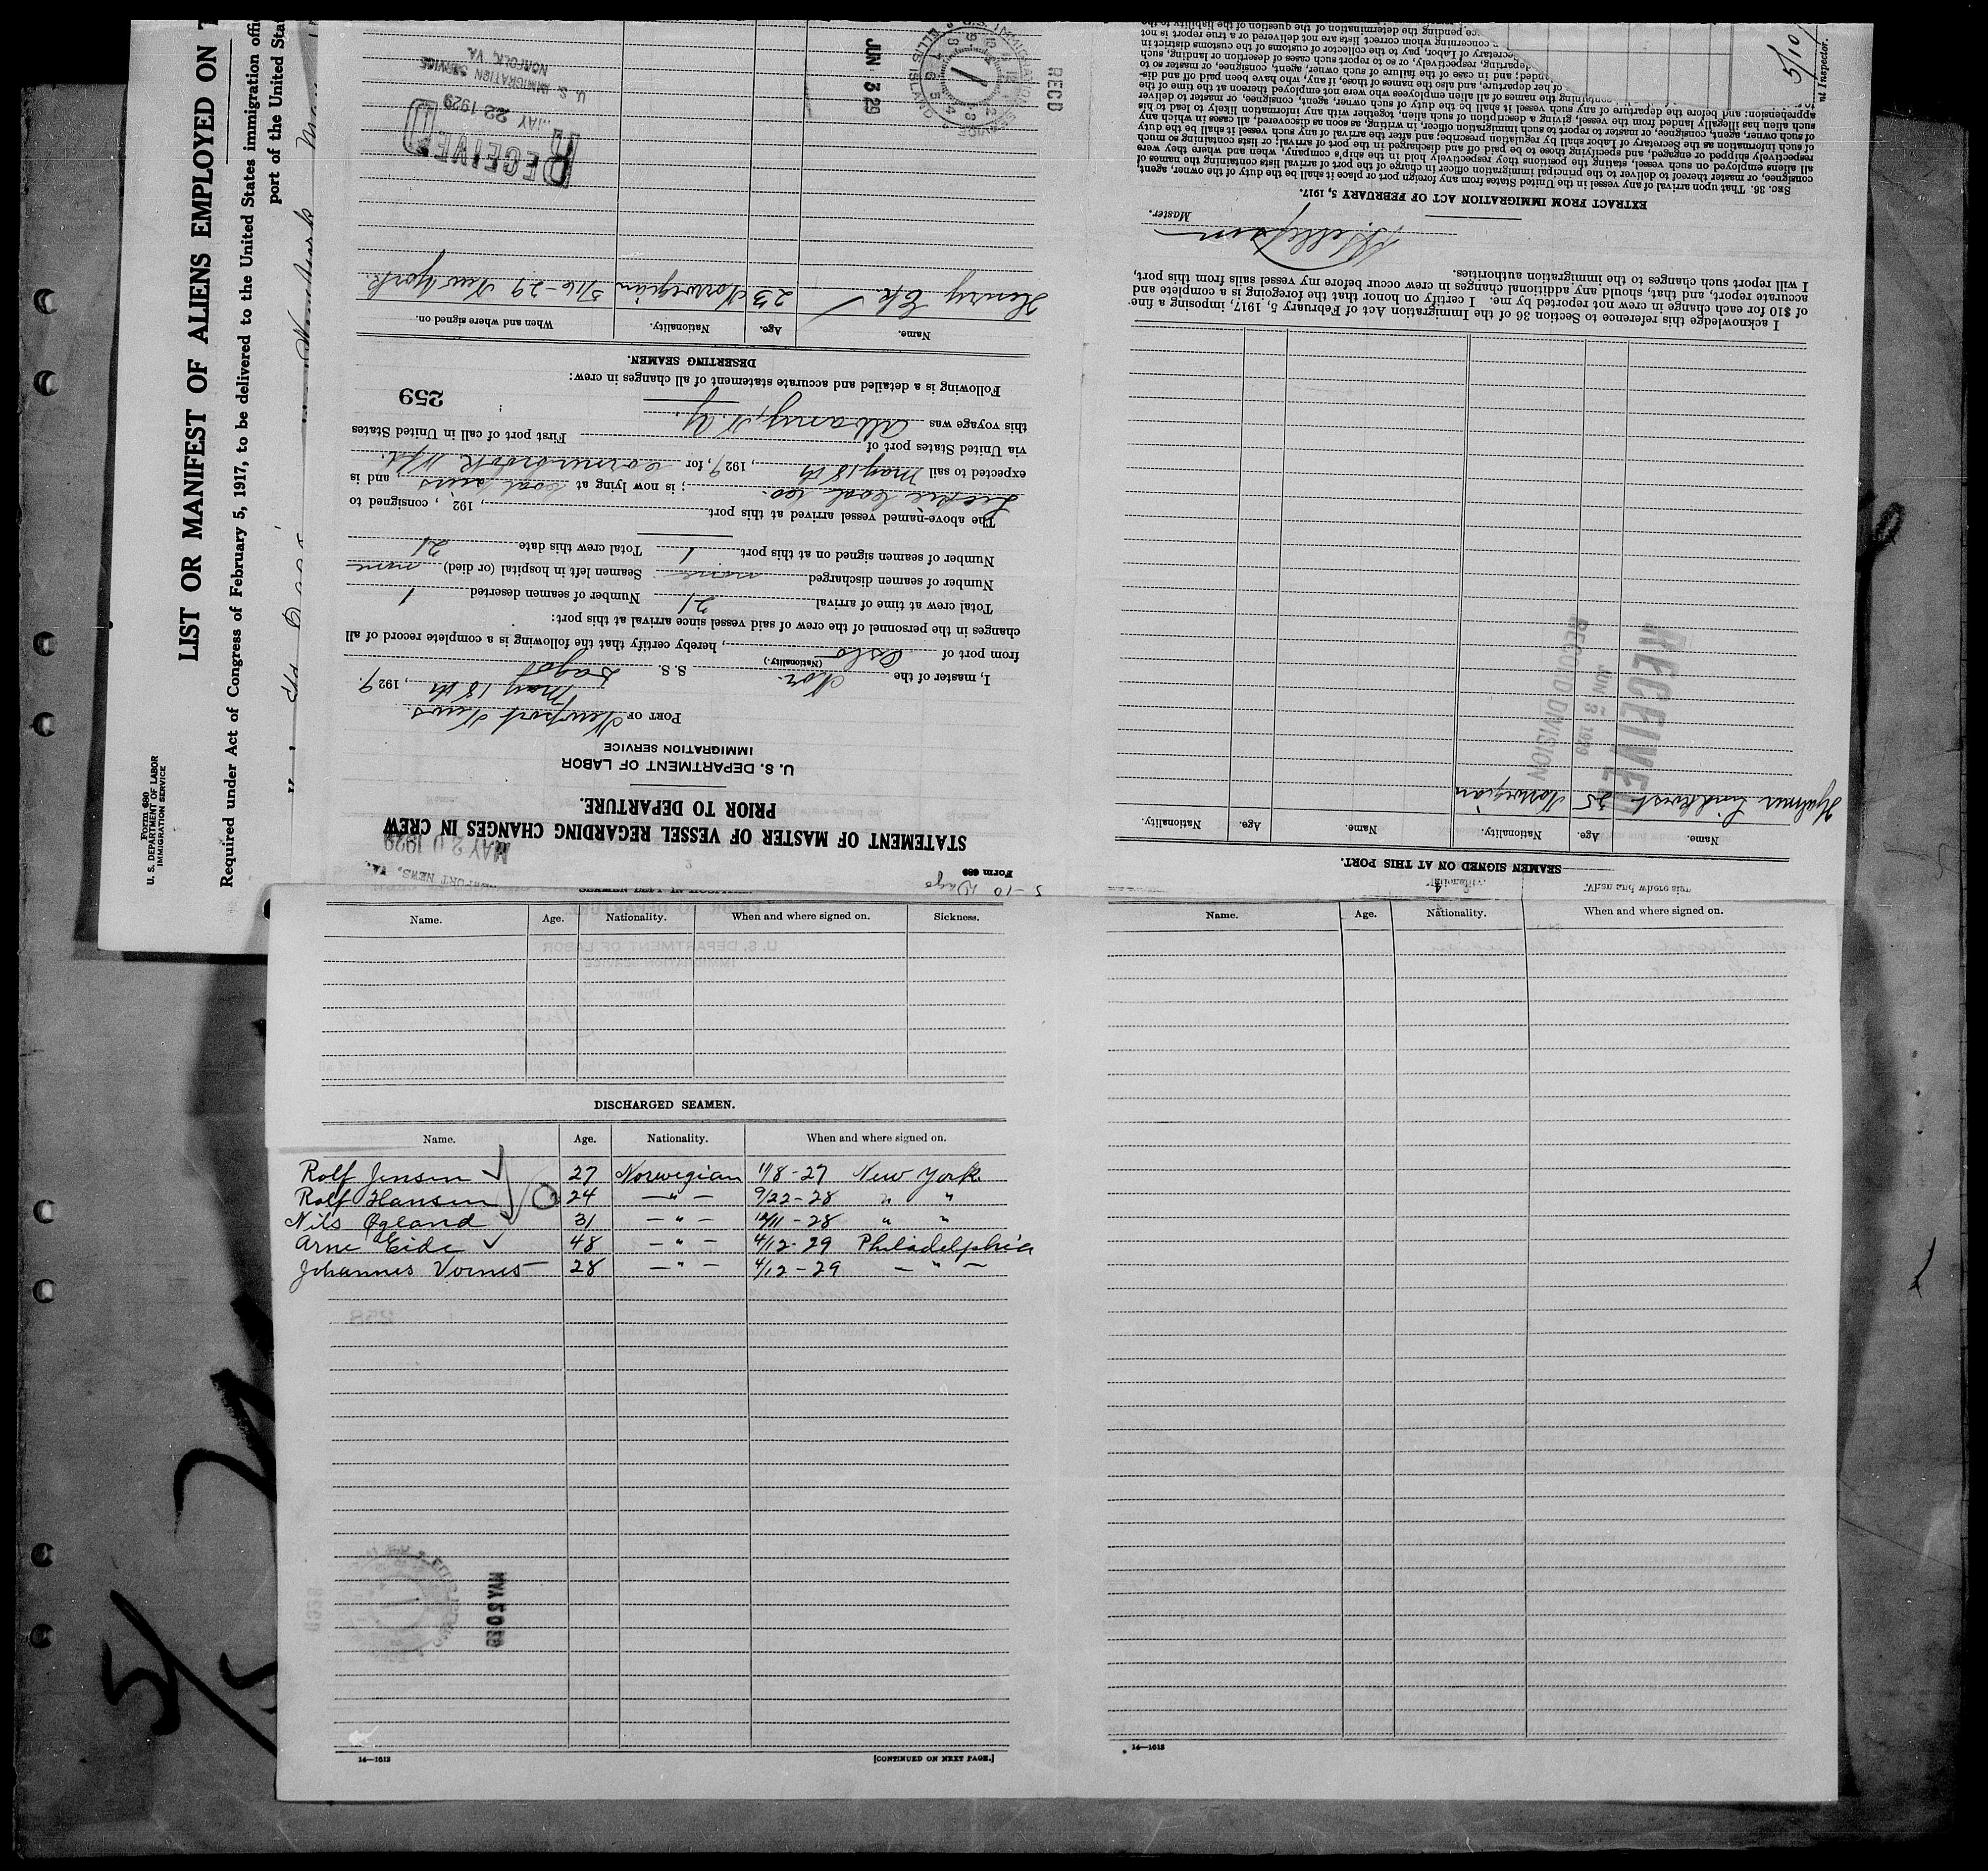 Form 680
U. S. DEPARTMENT OF LABOR
IMMIGRATION SERVICE
LIST OR MANIFEST OF ALIENS EMPLOYED ON
Required under Act of Congress of February 5, 1917, to be delivered to the United States immigration offi
port of the United Sta
5-10 Dago
Form 689
NEWPORT NEWS, VA.
MAY 20 1929
STATEMENT OF MASTER OF VESSEL REGARDING CHANGES IN CREW
PRIOR TO DEPARTURE.
U. S. DEPARTMENT OF LABOR
IMMIGRATION SERVICE
PORT OF Newport News
May 18th, 1929.
I, master of the Nor. S. S. Dagot
(Nationality.)
from port of Oslo, hereby certify that the following is a complete record of all
changes in the personnel of the crew of said vessel since arrival at this port:
Total crew at time of arrival 21 Number of seamen deserted 1
Number of seamen discharged none Seamen left in hospital (or died) none
Number of seamen signed on at this port 1 Total crew this date 21
The above-named vessel arrived at this port , 192 , consigned to
coal co. ; is now lying at coal piers and is
expected to sail May 18th, 1929, for Cornerbrook Nfd.
via United States port of First port of call in United States
this voyage was Albany, N.Y.
259
Following is a detailed and accurate statement of all changes in crew:
DESERTING SEAMEN.
Name. Age. Nationality. When and where signed on.
Henry Ek 23 Norwegian 3/16-29 New York.
RECEIVED
MAY 22 1929
U. S. IMMIGRATION SERVICE
NORFOLK, VA.
JUN 3 29
RECD
SEAMEN SIGNED ON AT THIS PORT.
Name. Age. Nationality. Name. Age. Nationality.
Hjalmer Lindkvist 25 Norwegian
RECEIVED
JUN 3 1929
RECORD DIVISION
I acknowledge this reference to Section 36 of the Immigration Act of February 5, 1917, imposing a fine
of $10 for each change in crew not reported by me. I certify on honor that the foregoing is a complete and
accurate report, and that, should any additional changes in crew occur before my vessel sails from this port,
I will report such changes to the immigration authorities.
Master.
EXTRACT FROM IMMIGRATION ACT OF FEBRUARY 5, 1917.
SEC. 36. That upon arrival of any vessel in the United States from any foreign port or place it shall be the duty of the owner, agent,
consignee, or master thereof to deliver to the principal immigration officer in charge of the port of arrival lists containing the names of
all aliens employed on such vessel, stating the positions they respectively hold in the ship's company, when and where they were
respectively shipped or engaged, and specifying those to be paid off and discharged in the port of arrival; or lists containing so much
of such information as the Secretary of Labor shall by regulation prescribe; and after the arrival of any such vessel it shall be the duty
of such owner, agent, consignee, or master to report to such immigration officer, in writing, as soon as discovered, all cases in which any
such alien has illegally landed from the vessel, giving a description of such alien, together with any information likely to lead to his
apprehension; and before the departure of any such vessel it shall be the duty of such owner, agent, consignee, or master to deliver
containing the names of all alien employees who were not employed thereon at the time of the
of her departure, and also the names of those, if any, who have been paid off and dis-
landed; and in case of the failure of such owner, agent, consignee, or master so to
departing, respectively, or so to report such cases of desertion or landing, such
Secretary of Labor, pay to the collector of customs of the customs district in
concerning whom correct lists are not delivered or a true report is not
pending the determination of the question of the liability to the
5/10
nt Inspector.
Name. Age. Nationality. When and where signed on. Sickness.
DISCHARGED SEAMEN.
Name. Age. Nationality. When and where signed on.
Rolf Jensen 27 Norwegian 11/8-27 New York
Rolf Hansen 24 — " — 9/22-28 " "
Nils Øgland 31 — " — 12/11-28 " "
Arne Eide 48 — " — 4/12-29 Philadelphia
Johannes Vornes 28 — " — 4/12-29 — " —
14—1613
[CONTINUED ON NEXT PAGE.]
Name. Age. Nationality. When and where signed on.
14—1613
5/15